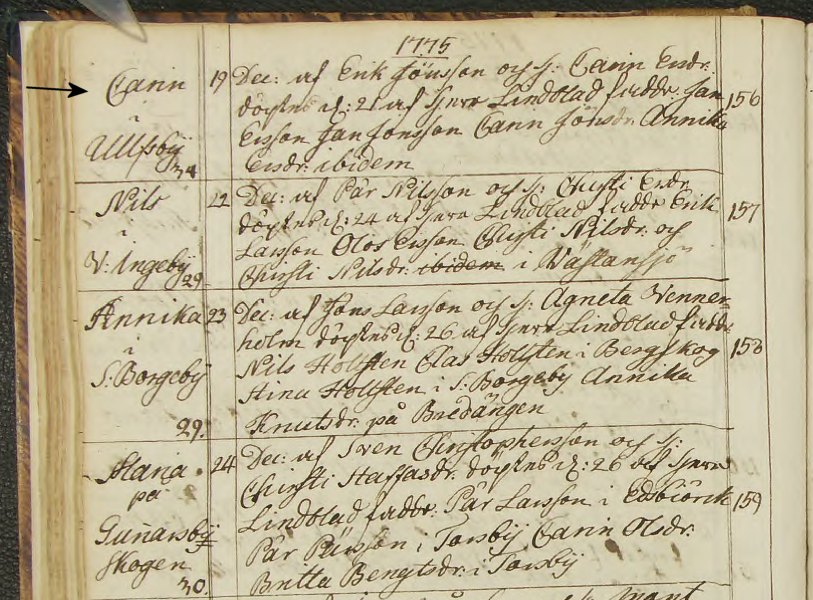 1775
Carin 19 Dec: af Erik Jönsson och h: Carin Ersdr.
döptes d: 21 af Herr Lindblad faddr. Jan 156
i Ersson Jan Jonsson Carin Jönsdr. Annika
Ullfsby Ersdr. ibidem
34
Nils 22 Dec: af Pär Nilsson och h: Christi Ersdr
döptes d: 24 af Herr Lindblad faddr Erik 157
i Larsson Olof Ersson Christi Nilsdr. och
V: Ingeby 29. Christi Nilsdr. ibidem i Västansjö
Annika 23 Dec: af Jöns Larsson och h: Agneta Wenner-
holm döptes d: 26 af Herr Lindblad faddr
i Nils Hollsten Clas Hollsten i Bergskog 158
S: Borgeby Stina Hollsten i S: Borgeby Annika
29. Knutsdr. på Bredängen
Maria 24 Dec: af Sven Christophersson och h:
på Christi Staffasdr. döptes d: 26 af Herr
Lindblad faddr. Pär Larsson i Edsbiörck 159
Gunnarsby Pär Pärsson i Torsby Carin Olsdr.
skogen Britta Bengtsdr. i Torsby
30.